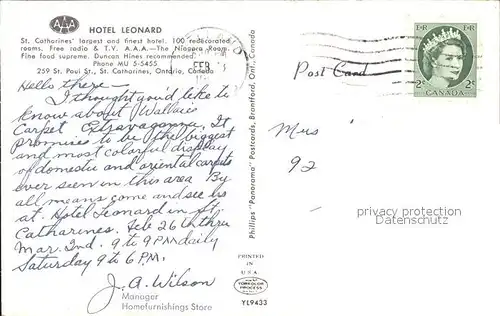 AAA
HOTEL LEONARD
St. Catharines' largest and finest hotel. 100 redecorated
rooms. Free radio & T.V. A.A.A.—The Niagara Room.
Fine food supreme. Duncan Hines recommended.
Phone MU 5-5455
259 St. Paul St., St. Catharines, Ontario, Canada
Hello there –
I thought you'd like to
know about Wallace
Carpet Extravaganza. It
promises to be the biggest
and most colorful display
of domestic and oriental carpets
ever seen in this area. By
all means come and see us
at Hotel Leonard in St.
Catharines. Feb 26 thru
Mar. 2nd. 9 to 9 PM daily
Saturday 9 to 6 P.M.
J. A. Wilson
Manager
Homefurnishings Store
Phillips "Panorama" Postcards, Brantford, Ont., Canada
FEB
Post Card
E R E R
2c 2c
CANADA
Mrs
92
privacy protection
watermark
PRINTED
IN
U S A
YL9433